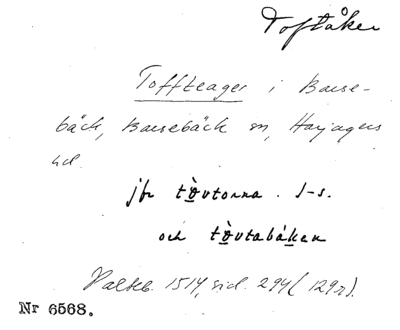 Toftåker
Toffteager i Barse-
bäck, Barsebäck sn, Harjagers
hd.
jfr tòvtorna . I-s.
och tòvtabáken
Palteb. 1514, sid. 294 (129r).
Nr 6568.